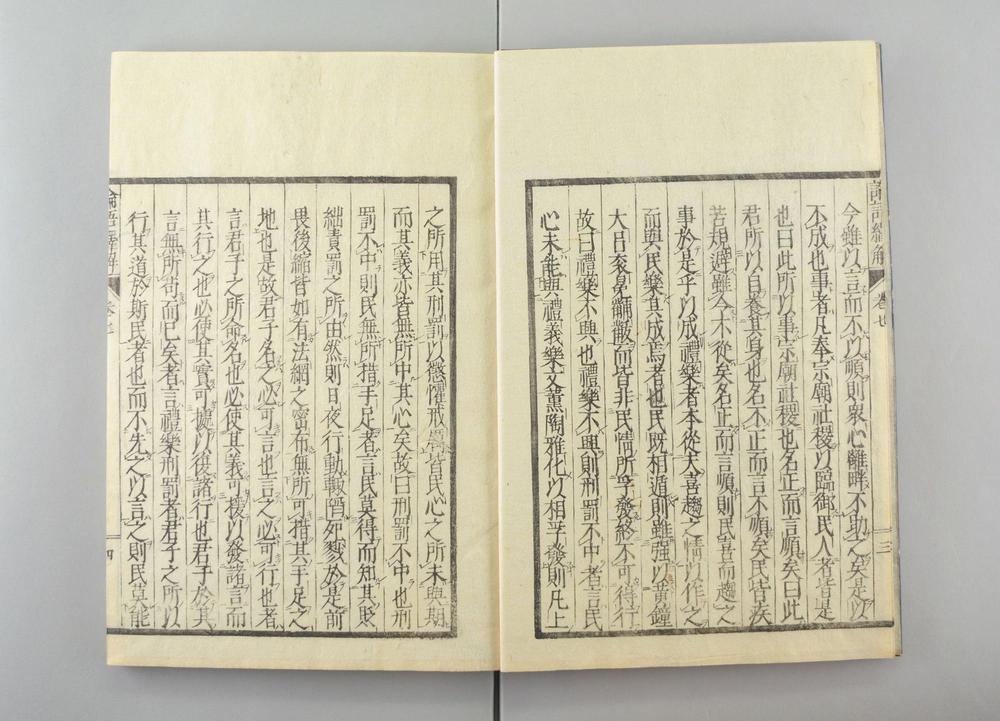 今雖以言而不以順則衆心離畔不助之矣是以
不成也事者凡奉宗廟社稷以臨御民人者皆是
也曰此所以事宗廟社稷也名正而言順矣曰此
君所以自養其身也名不正而言不順矣民皆疾
苦規避雖令不從矣名正而言順則民喜而趨之
事於是乎以成禮樂者本從夫喜趨之情以作之
而與民樂其成焉者也民既相遁則雖強以黃鐘
大呂袞冕黼黻而皆非民情所孚發終不可得行
故曰禮樂不興也禮樂不興則刑罰不中者言民
心未能與禮義樂文薰陶雅化以相孚發則凡上
之所用其刑罰以懲懼戒者皆民心之所未與期
而其義亦皆無所中其心矣故曰刑罰不中也刑
罰不中則民無所措手足者言民莫得而知其貶
絀責罰之所由然則日夜行動數陷死戮於是前
畏後縮皆如有法網之密布無所可措其手足之
地也是故君子名之必可言也言之必可行也者
言君子之所命名也必使其義可援以發諸言而
其行之也必使其實可據以後諸行也君子於其
言無所苟而已矣者言禮樂刑罰者君子之所以
行其道於斯民者也而不先之以言之則民莫能
卷七
三
四